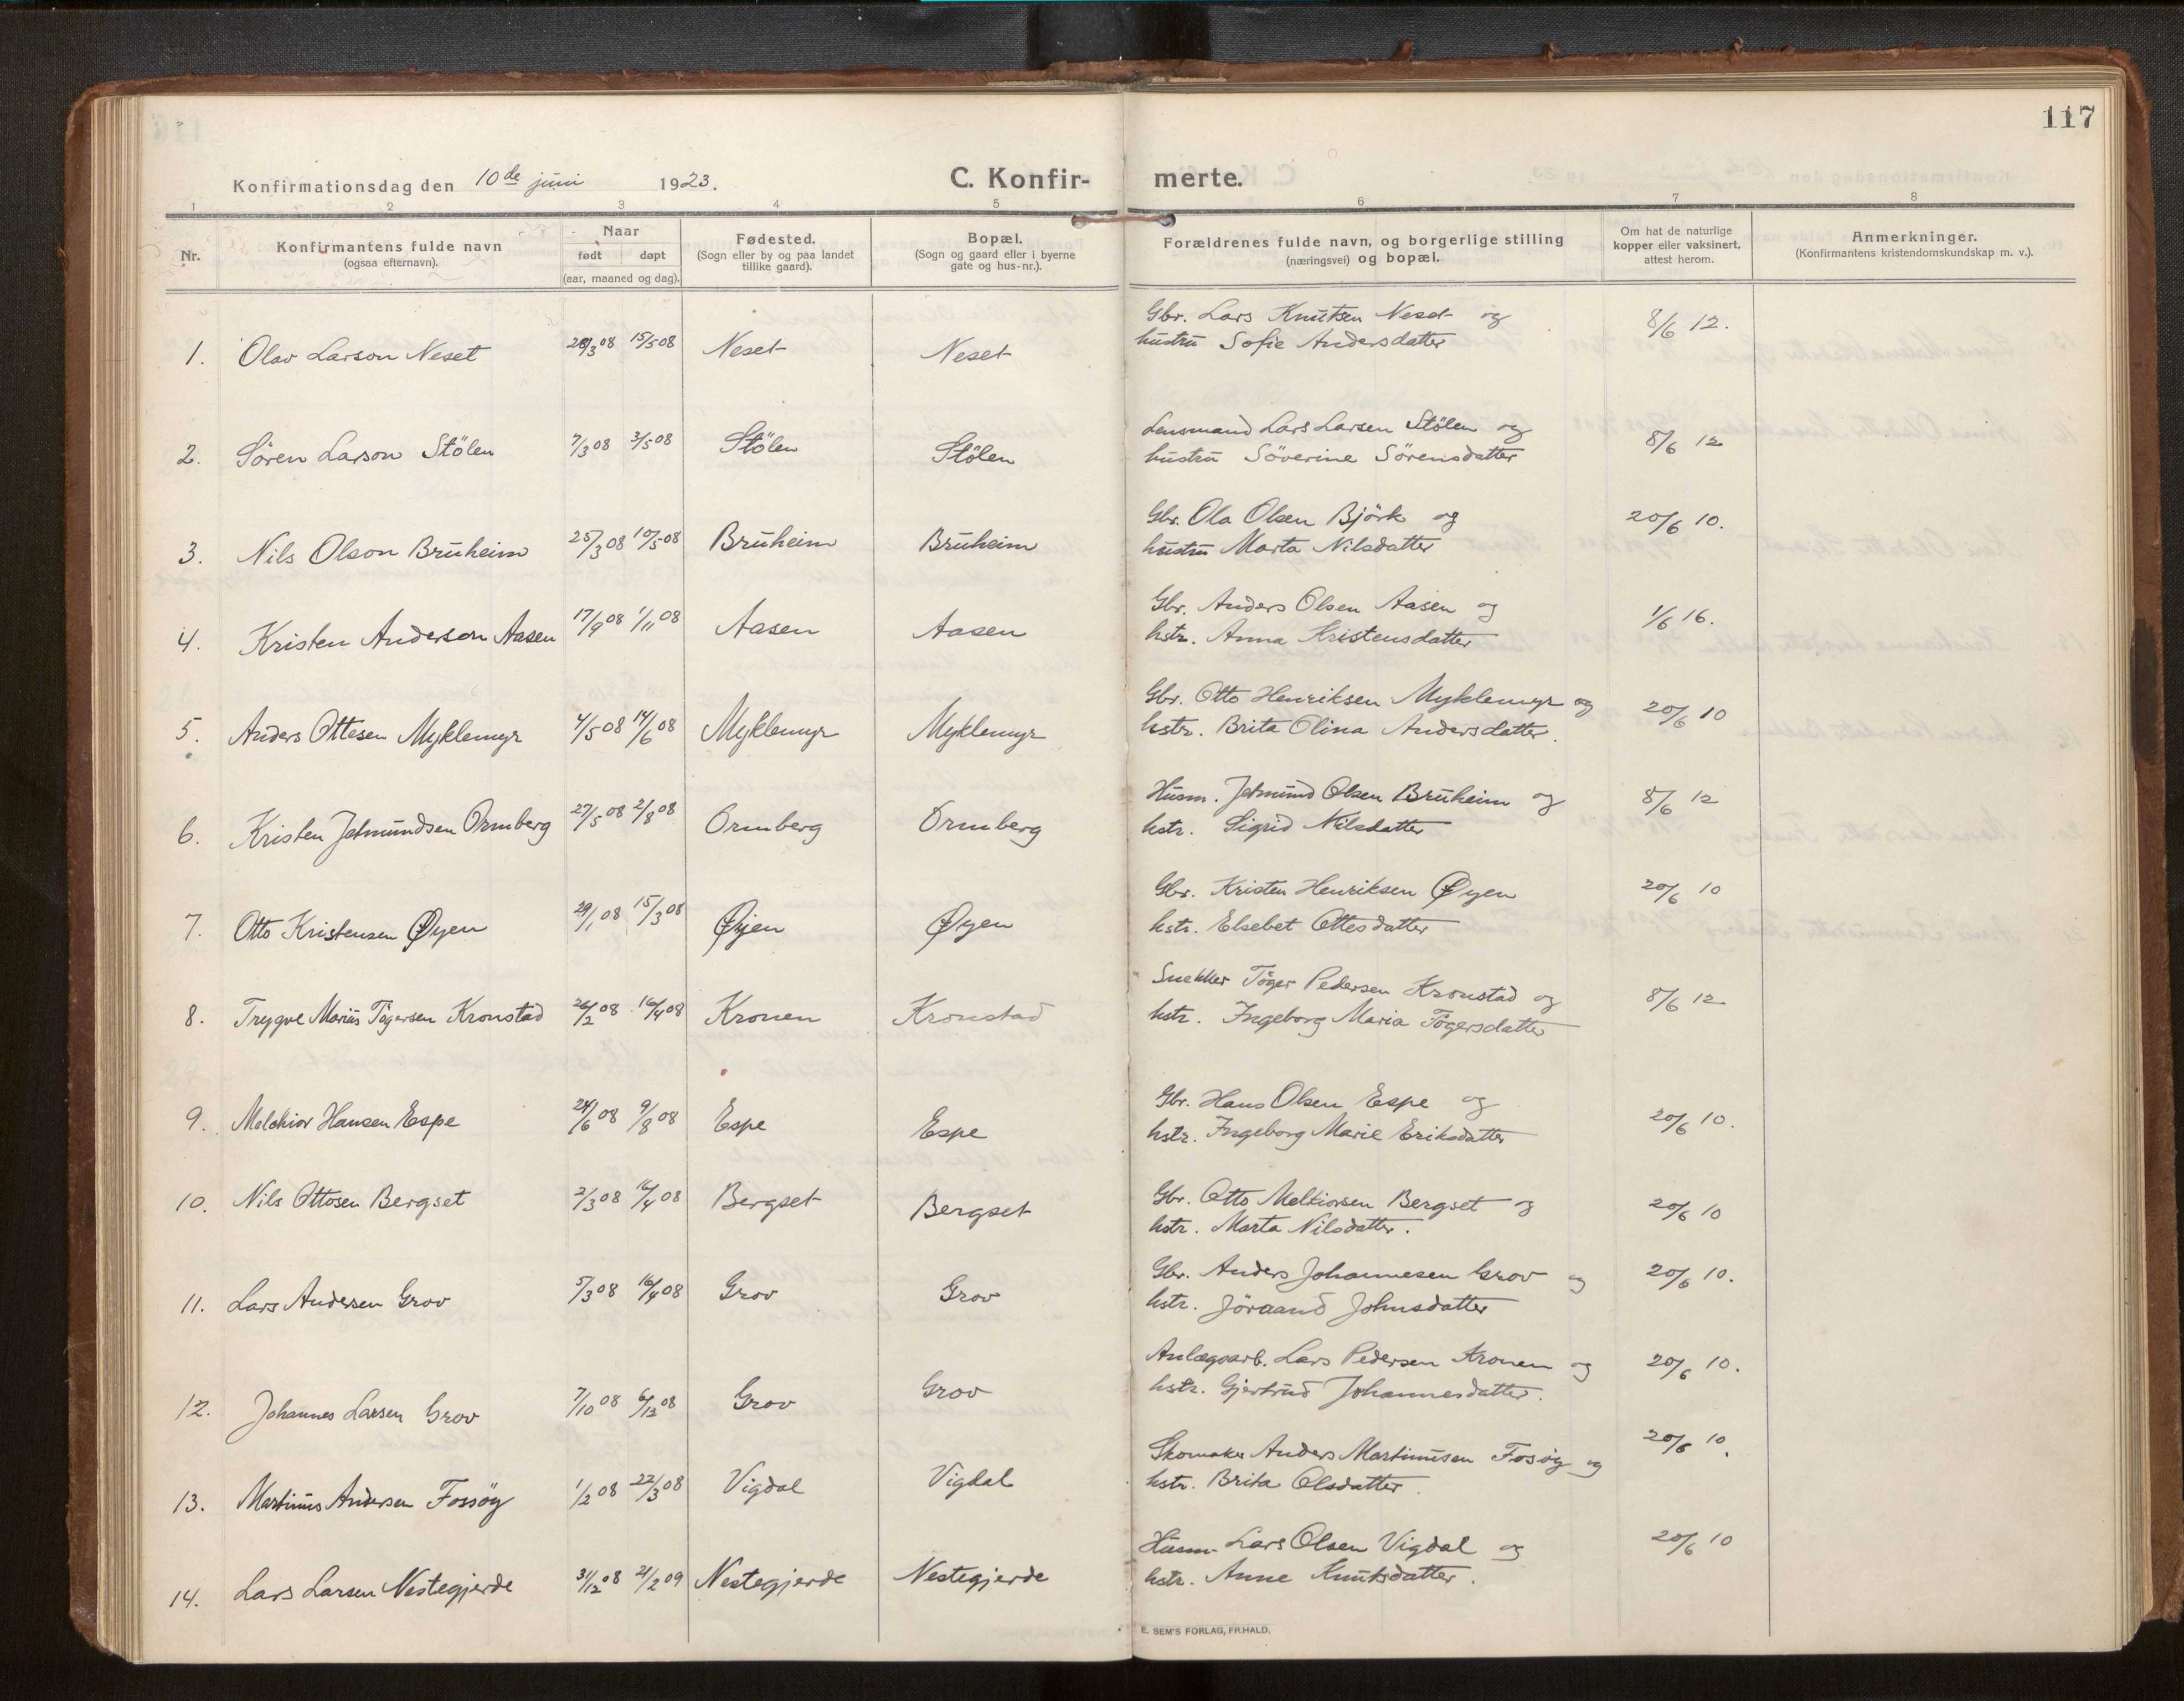 117
Konfirmationsdag den 10de juni 1923.
C. Konfir- merte.
1 2 3 4 5 6 7 8
Nr.
Konfirmantens fulde navn
(ogsaa efternavn).
Naar
født døpt
(aar, maaned og dag).
Fødested.
(Sogn eller by og paa landet
tillike gaard).
Bopæl.
(Sogn og gaard eller i byerne
gate og hus-nr.).
Forældrenes fulde navn, og borgerlige stilling
(næringsvei) og bopæl.
Om hat de naturlige
kopper eller vaksinert,
attest herom.
Anmerkninger.
(Konfirmantens kristendomskundskap m. v.).
Gbr. Lars Knutsen Neset og
1. Olav Larson Neset 28/3 08 15/5 08 Neset Neset hustru Sofie Andersdatter 8/6 12.
Lensmand Lars Larsen Stölen og
2. Sören Larson Stölen 7/3 08 3/5 08 Stölen Stölen hustru Söverine Sörensdatter 8/6 12
Gbr. Ola Olsen Björk og
3. Nils Olson Bruheim 25/3 08 10/5 08 Bruheim Bruheim hustru Marta Nilsdatter 20/6 10.
Gbr. Anders Olsen Aasen og
4. Kristen Anderson Aasen 17/9 08 1/11 08 Aasen Aasen hstr. Anna Kristensdatter 1/6 16.
Gbr. Otto Henriksen Myklemyr og
5. Anders Ottesen Myklemyr 4/5 08 14/6 08 Myklemyr Myklemyr hstr. Brita Olina Andersdatter. 20/6 10
Husm. Jetmund Olsen Bruheim og
6. Kristen Jetmundsen Ormberg 27/5 08 2/8 08 Ormberg Ormberg hstr. Sigrid Nilsdatter 8/6 12
Gbr. Kristen Henriksen Øyen
7. Otto Kristensen Øyen 29/1 08 15/3 08 Øijen Øyen hstr. Elsebet Ottesdatter 20/6 10
Snekker Töger Pedersen Kronstad og
8. Trygve Marius Tögersen Kronstad 26/2 08 16/4 08 Kronen Kronstad hstr. Ingeborg Maria Tögersdatter 8/6 12
Gbr. Hans Olsen Espe og
9. Melchior Hansen Espe 24/6 08 9/8 08 Espe Espe hstr. Ingeborg Marie Eriksdatter 20/6 10.
Gbr. Otto Melkiorsen Bergset og
10. Nils Ottosen Bergset 2/3 08 16/4 08 Bergset Bergset hstr. Marta Nilsdatter. 20/6 10
Gbr. Anders Johannesen Grov og
11. Lars Andersen Grov 5/3 08 16/4 08 Grov Grov hstr. Jöraand Johnsdatter 20/6 10.
Anlægsarb. Lars Pedersen Kronen og
12. Johannes Larsen Grov 7/10 08 6/12 08 Grov Grov hstr. Gjertrud Johannesdatter. 20/6 10.
Skomaker Anders Martinusen Fosöy og
13. Martinus Andersen Fossöy 1/2 08 22/3 08 Vigdal Vigdal hstr. Brita Olsdatter. 20/6 10.
Husm. Lars Olsen Vigdal og
14. Lars Larsen Nestegjerde 31/12 08 21/2 09 Nestegjerde Nestegjerde hstr. Anne Knutsdatter. 20/6 10
E. SEM'S FORLAG, FR.HALD.